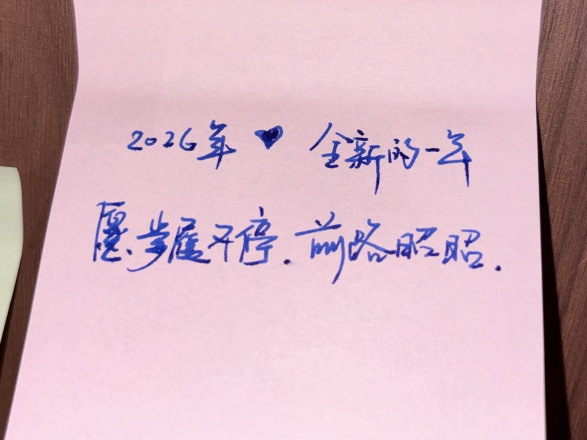 2026年 ♥ 全新的一年
愿步履不停.前路昭昭.